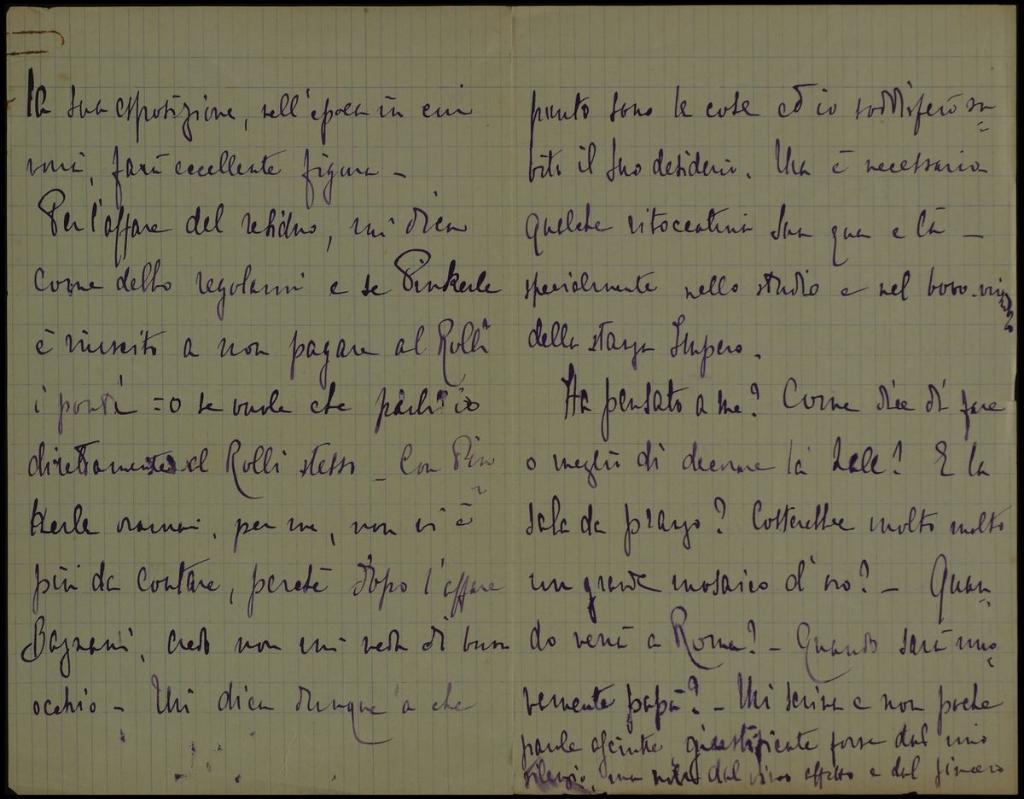 la sua esposizione, nell'epoca in cui
verrà, farà eccellente figura -
Per l'affare del residuo, mi dica
come debbo regolarmi e se Pinkerle
è riuscito a non pagare al Rolli
i = o se vuole che parli io
direttamente al Rolli stesso - Con Pin
kerle oramai, per me, non vi è
più da contare, perché dopo l'affare
credo non mi veda di buon
occhio - Mi dica dunque a che
punto sono le cose ed io soddisferò su=
bito il Suo desiderio. Ma è necessaria
qualche ritoccatina Sua qua e là -
specialmente nello studio e nel
della stanza Impero.
Ha pensato a me? Come dice di fare
o meglio di decorare la Hall? E la
Sala da pranzo? Costerebbe molto molto
un grande mosaico d'oro? - Quan=
do verrà a Roma? - Quando sarà nuo=
vamente papà? - Mi scriva e non poche
parole asciutte, forse dal mio
silenzio, ma non dal vivo affetto e dal sincero